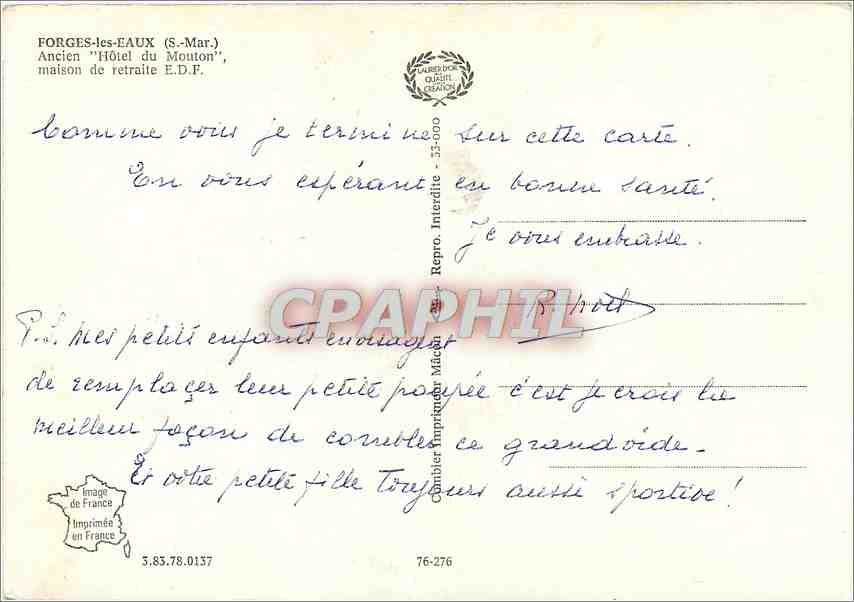 FORGES-les-EAUX (S.-Mar.)
Ancien "Hôtel du Mouton",
maison de retraite E.D.F.
LAURIER D'OR
DE LA
QUALITÉ
CRÉATION
Comme vous je termine sur cette carte.
En vous espérant en bonne santé.
Je vous embrasse.
R. Noël
P.S. Mes petits enfants envisagent
de remplacer leur petite poupée c'est je crois la
meilleur façon de combler ce grand vide -
Et votre petite fille toujours aussi sportive !
Combier Imprimeur Mâcon - Repro. Interdite - 53-000
CPAPHIL
Image
de France
Imprimée
en France
3.83.78.0137
76-276